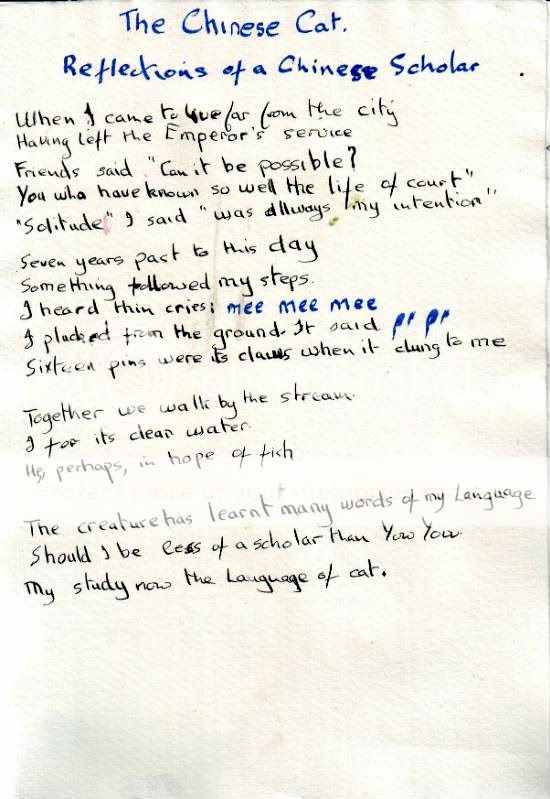 The Chinese Cat.
Reflections of a Chinese Scholar
When I came to live far from the city
Having left the Emperor's service
Friends said "Can it be possible?
You who have known so well the life of court"
"Solitude" I said "was allways my intention"
Seven years past to this day
Something followed my steps.
I heard thin cries; mee mee mee
I plucked from the ground. It said pr pr
Sixteen pins were its claws when it clung to me
Together we walk by the stream.
I for its clean water.
He, perhaps, in hope of fish
The creature has learnt many words of my Language
Should I be less of a scholar than Yow Yow.
My study now the Language of cat.